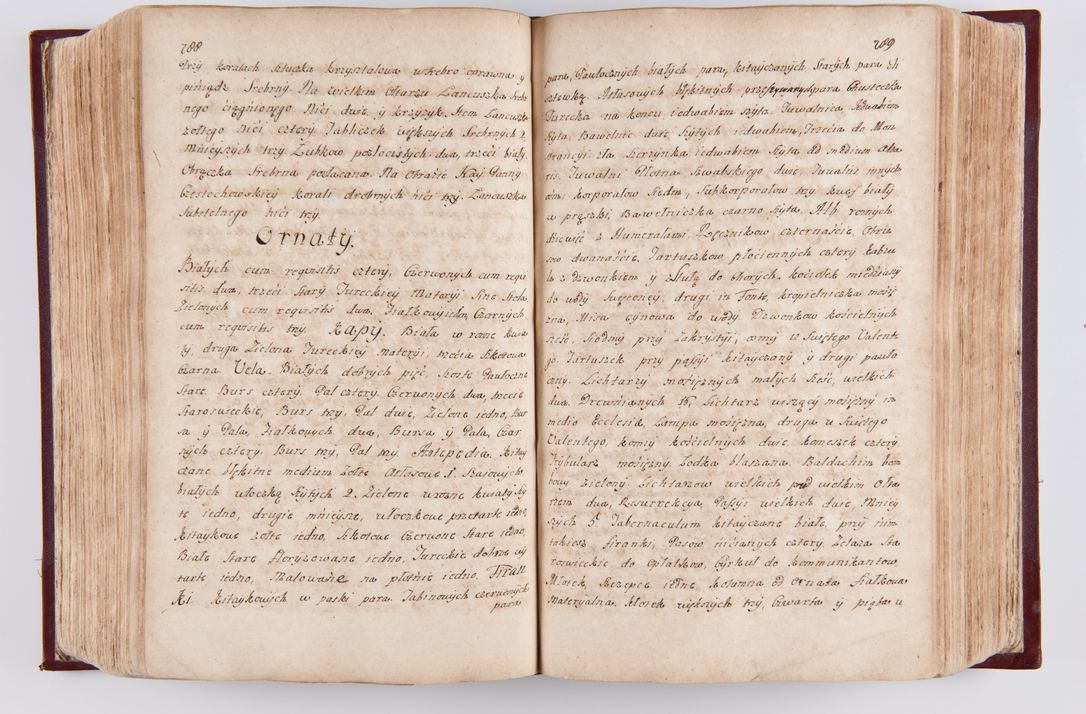 288
trzy koralach sztuczka krzyształowa w srebro oprawna y
pieniądz Srebrny. Na wielkim Ołtarzu Łancuszka Srebr
nego ciągnionego Nici dwie, y krzyżyk. Item Łancuszka
żołtego Nici cztery Tabliczek większych Srebrnych 2.
Mnieyszych trzy. Ząbkow pozłocistych dwa, trzeci biały
Obrączka Srebrna pozłacana. Na Obrazie Nay Panny
Częstochowskiey korali drobnych nici trzy, Łancuszka
Subtelnego nici trzy.
Ornaty.
Białych cum requisitis cztery, Czerwonych cum requi
sitis dwa, trzeci stary Tureckiey Materyi sine Stola,
Zielonych cum requisitis dwa, Fiałkowy ieden, Czarnych
cum requisitis trzy. Kapy, Biała w rozne kwia
ty, druga Zielona Tureckiey materyi, trzecia
czarna. Vela. Białych dobrych pięć, szoste Pauloczne
stare, Burs cztery. Pal cztery. Czerwonych dwa, trzecie
staroswieckie, Burs trzy, Pal dwie, Zielone iedno, Bur
sa y Pala, Fiałkowych dwa, Bursa y Pala, Czar
nych cztery, Burs trzy, Pal trzy. Antepedia. kitay
czane błękitne medium żołte Atłasowe 1.
białych włoczką szytych 2. Zielone w rozne kwiaty szy
te iedno, drugie mnieysze, włoczkowe przetarte iedno,
kitaykowe żołte iedno, Czerwone stare iedno,
Białe stare floryzowane iedno, Tureckie dobrze wy
tarte iedno, Malowane na płotnie iedno. Firan
ki. kitaykowych w paski para Tabinowych czerwonych
para
289
para, Paulocznych białych para, kitayczanych starych para
Atłasowych błękitnych para. Chusteczka
Turecka na koncu iedwabiem szyta. Tuwalnica, iedwabiem
szyta. Bawełnic dwie szytych iedwabiem, Trzecia do Mon
strancyi zła. Serzynka iedwabiem szyta ad medium Alta
ris. Tuwalni Płotna Szwabskiego dwie, Tuwalni innych
ośm, korporałow siedm, Subkorporałow trzy, biały
w prążki. Bawełniczka czarno szyta. Alb roznych
dziewięć z Humerałami, Ręcznikow czternaście, Obru
sow dwanaście, Fartuszkow płociennych cztery.
z dzwonkiem y stułą do chorych, kociołek miedziany
do wody święconey, drugi in Fonte, kropielniczka mosię
zna, Misa cynowa do wody. Dzwonkow koscielnych
sześć, siodmy przy zakrystyi, osmy u Swiętego Valente
go. Fartuszek przy passyi kitayczany y drugi paulo
czny. Lichtarzy mosiężnych małych sześć, wielkich
dwa. Drewnianych 16, Lichtarz wiszący mosiężny in
medio Ecclesiæ, Lampa mosiężna, druga u Swiętego
Valentego, komży koscielnych dwie, komeszek cztery,
Trybularz mosiężny. Lodka blaszana. Baldachim bom
bowy zielony. Lichtarzow wielkich przed wielkim Ołta
rzem dwa, Resurrekcya, Passyi wielkich dwie, Mniey
szych 5. Tabernaculum kitayczane białe, przy nim
takież firanki, Pasow nicianych cztery. Zelaza Sta
roswieckie do Opłatkow, Cyrkul do kommunikantow
Mszał, ieden, kolumna od Ornata Fiałkowa
materyalna, większych trzy, Czwarta y piąta u